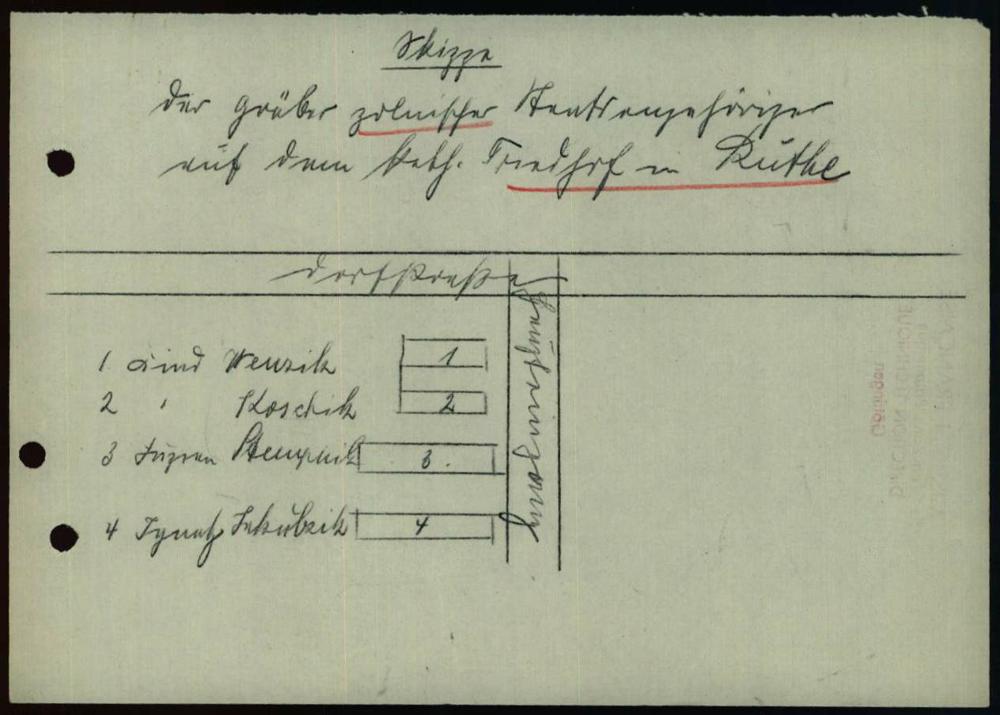 Skizze
der Gräber polnischer Staatsangehöriger
auf dem kath. Friedhof in Ruthe
Dorfstraße
Haupteingang
1 Kind Wenzik 1
2 " Koschik 2
3 Stempnik 3.
4 Ignatz Jakubzik 4
Göttingen